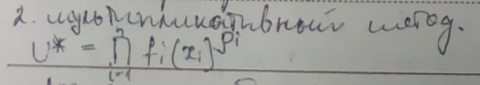 2. мультипликативный метод.
U* = ∏ⁿᵢ₌₁ fᵢ(xᵢ)^ρᵢ